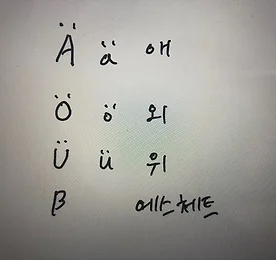 Ä ä 애
Ö ö 외
Ü ü 위
β 에스체트